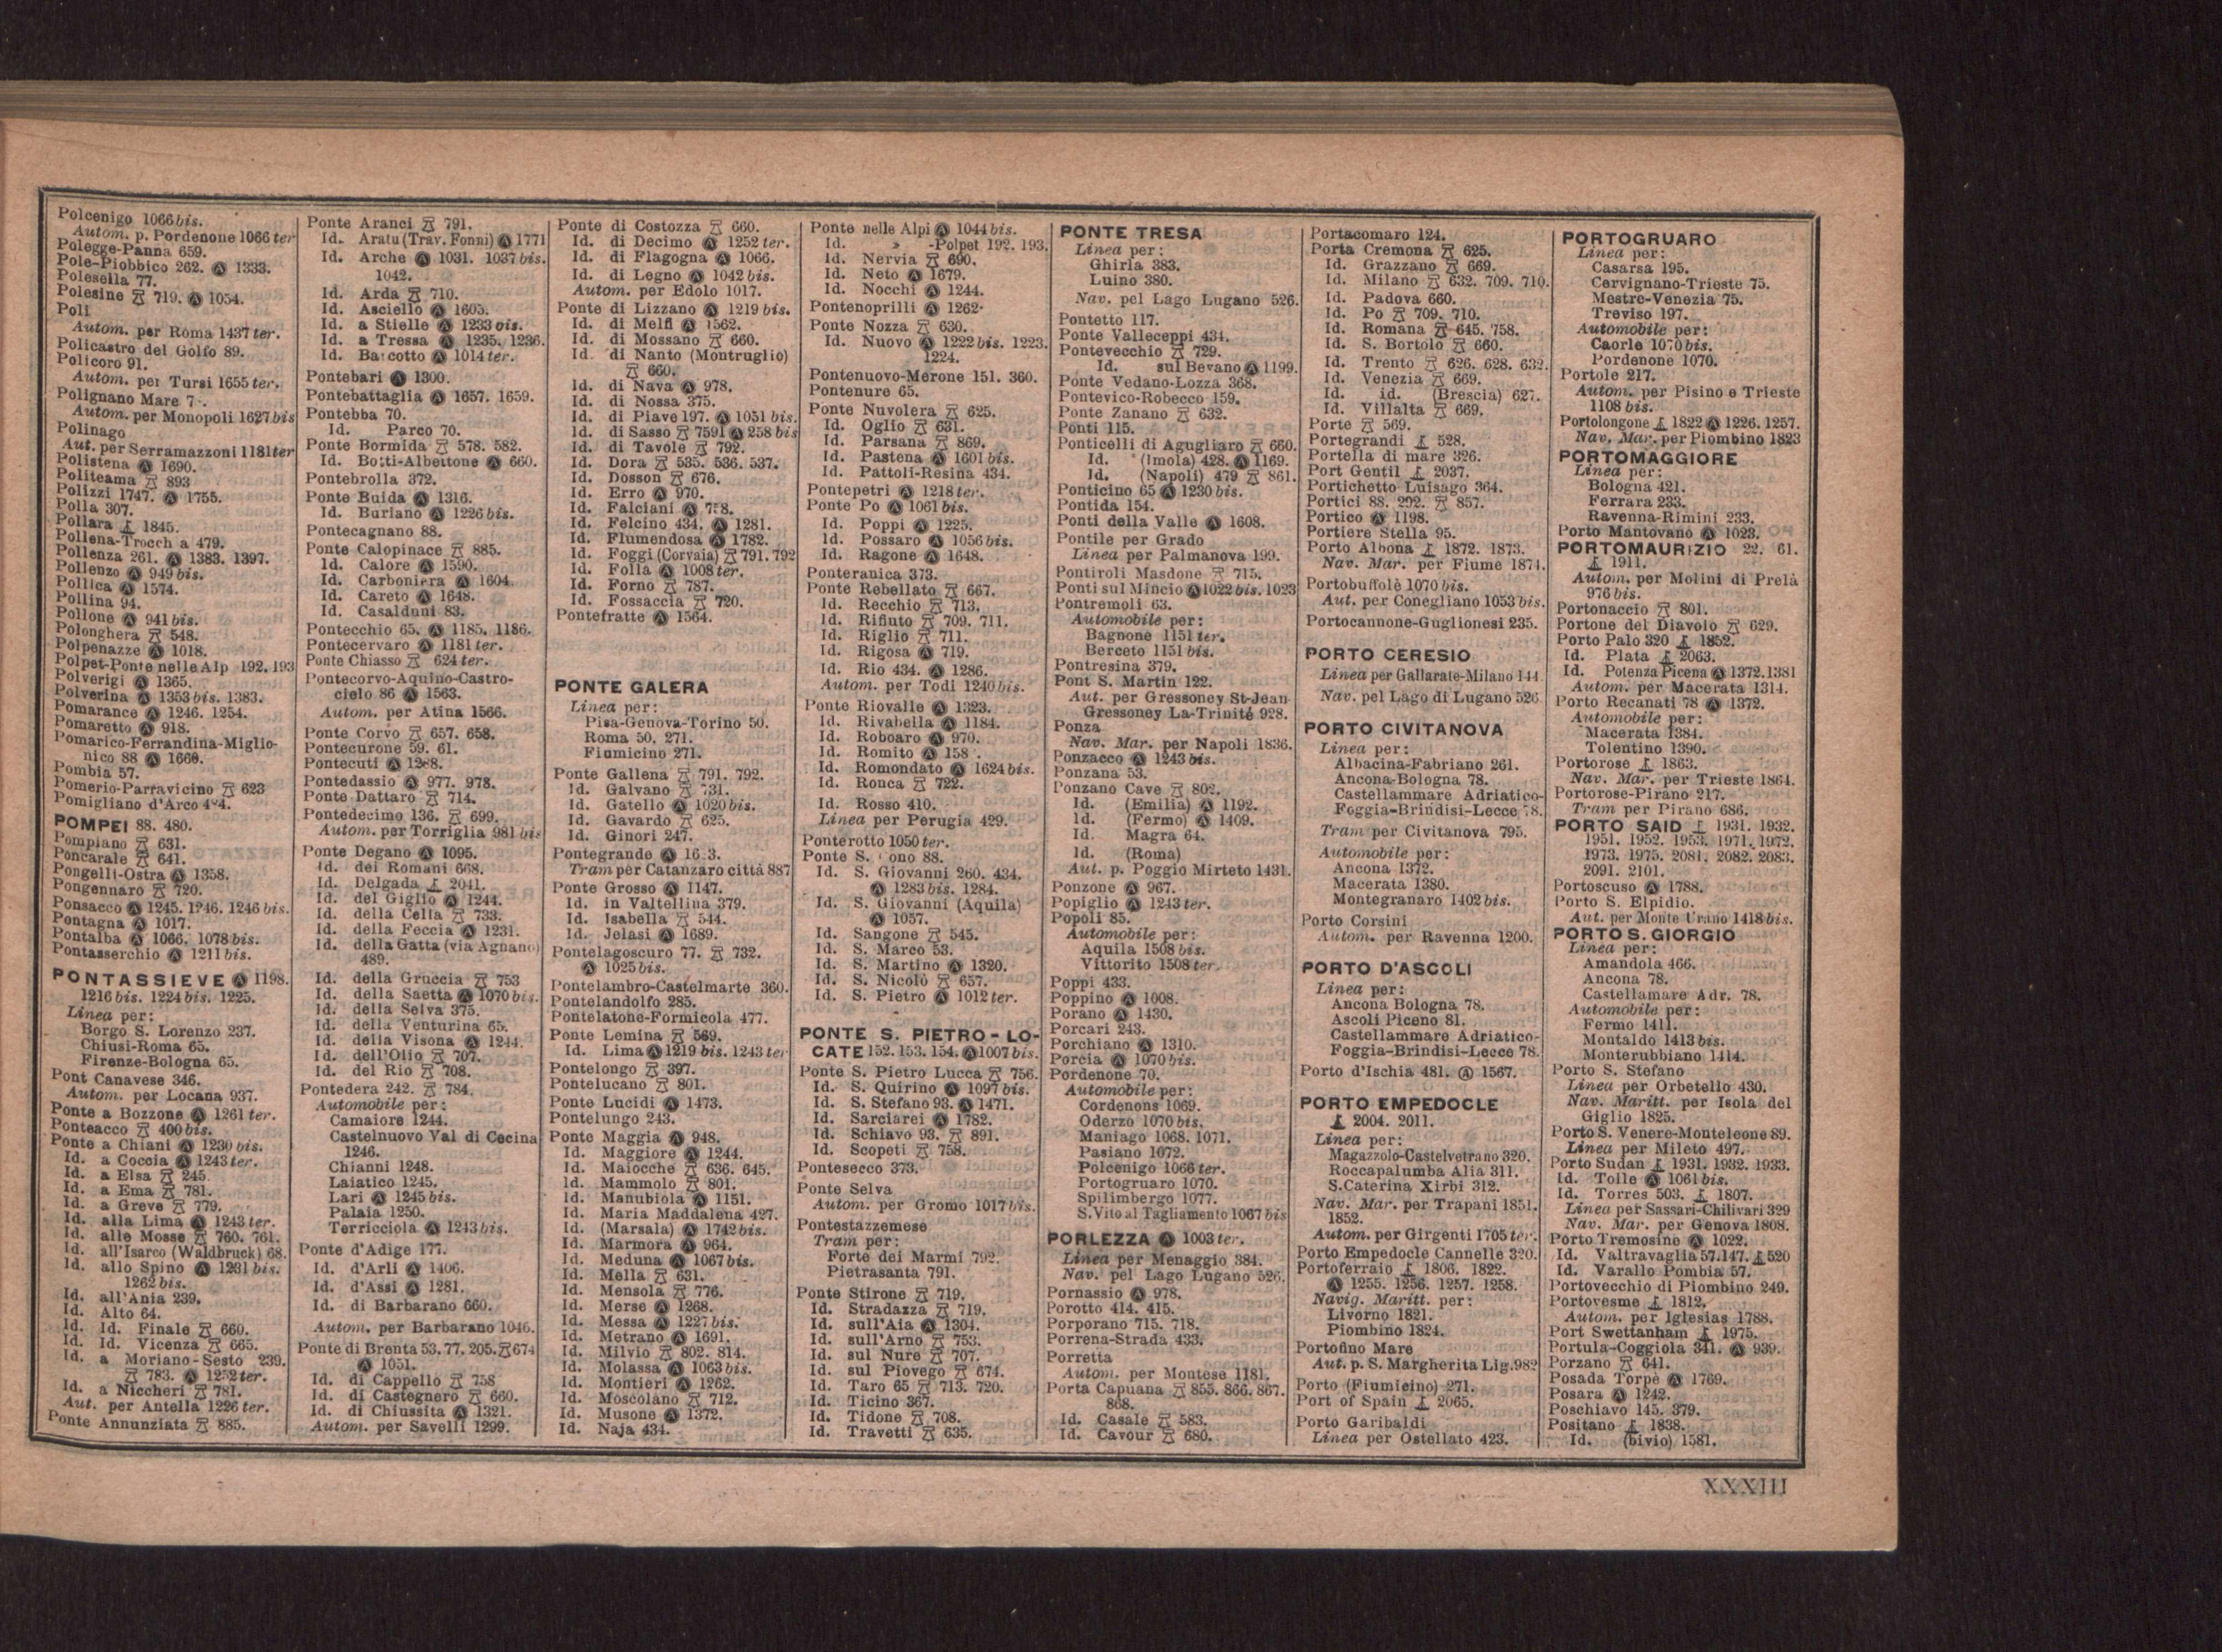 Polcenigo 1066 bis.
Autom. p. Pordenone 1066 ter
Polegge-Panna 659.
Pole-Piobbico 262. Ⓐ 1333.
Polesella 77.
Polesine 719. Ⓐ 1054.
Poli
Autom. per Roma 1437 ter.
Policastro del Golfo 89.
Policoro 91.
Autom. per Tursi 1655 ter.
Polignano Mare
Autom. per Monopoli 1627 bis
Polinago
Aut. per Serramazzoni 1181 ter
Polistena Ⓐ 1690.
Politeama 893
Polizzi 1747. Ⓐ 1755.
Polla 307.
Pollara 1845.
Pollena-Trocch a 479.
Pollenza 261. Ⓐ 1383. 1397.
Pollenzo Ⓐ 949 bis.
Pollica Ⓐ 1574.
Pollina 94.
Pollone Ⓐ 941 bis.
Polonghera 548.
Polpenazze Ⓐ 1018.
Polpet-Ponte nelle Alp 192. 193
Polverigi Ⓐ 1365.
Polverina Ⓐ 1353 bis. 1383.
Pomarance Ⓐ 1246. 1254.
Pomaretto Ⓐ 918.
Pomarico-Ferrandina-Miglio-
nico 88 Ⓐ 1660.
Pombia 57.
Pomerio-Parravicino 623
Pomigliano d'Arco
POMPEI 88. 480.
Pompiano 631.
Poncarale 641.
Pongelli-Ostra Ⓐ 1358.
Pongennaro 720.
Ponsacco Ⓐ 1245. 1246. 1246 bis.
Pontagna Ⓐ 1017.
Pontalba Ⓐ 1066. 1078 bis.
Pontasserchio Ⓐ 1211 bis.
PONTASSIEVE Ⓐ 1198.
1216 bis. 1224 bis. 1225.
Linea per:
Borgo S. Lorenzo 237.
Chiusi-Roma 65.
Firenze-Bologna 65.
Pont Canavese 346.
Autom. per Locana 937.
Ponte a Bozzone Ⓐ 1261 ter.
Ponteacco 400 bis.
Ponte a Chiani Ⓐ 1230 bis.
Id. a Coccia Ⓐ 1243 ter.
Id. a Elsa 245.
Id. a Ema 781.
Id. a Greve 779.
Id. alla Lima Ⓐ 1243 ter.
Id. alle Mosse 760. 761.
Id. all'Isarco (Waldbruck) 68.
Id. allo Spino Ⓐ 1231 bis.
1262 bis.
Id. all'Ania 239.
Id. Alto 64.
Id. Id. Finale 660.
Id. Id. Vicenza 665.
Id. a Moriano-Sesto 239.
783. Ⓐ 1252 ter.
Id. a Niccheri 781.
Aut. per Antella 1226 ter.
Ponte Annunziata 885.
Ponte Aranci 791.
Id. Aratu (Trav. Fonni) Ⓐ 1771
Id. Arche Ⓐ 1031. 1037 bis.
1042.
Id. Arda 710.
Id. Asciello Ⓐ 1605.
Id. a Stielle Ⓐ 1233 bis.
Id. a Tressa Ⓐ 1235. 1236.
Id. Barcotto Ⓐ 1014 ter.
Pontebari Ⓐ 1300.
Pontebattaglia Ⓐ 1657. 1659.
Pontebba 70.
Id. Parco 70.
Ponte Bormida 578. 582.
Id. Botti-Albettone Ⓐ 660.
Pontebrolla 372.
Ponte Buida Ⓐ 1316.
Id. Buriano Ⓐ 1226 bis.
Pontecagnano 88.
Ponte Calopinace 885.
Id. Calore Ⓐ 1590.
Id. Carboniera Ⓐ 1604.
Id. Careto Ⓐ 1648.
Id. Casalduni 83.
Pontecchio 65. Ⓐ 1185. 1186.
Pontecervaro Ⓐ 1181 ter.
Ponte Chiasso 624 ter.
Pontecorvo-Aquino-Castro-
cielo 86 Ⓐ 1563.
Autom. per Atina 1566.
Ponte Corvo 657. 658.
Pontecurone 59. 61.
Pontecuti Ⓐ
Pontedassio Ⓐ 977. 978.
Ponte Dattaro 714.
Pontedecimo 136. 699.
Autom. per Torriglia 981 bis
Ponte Degano Ⓐ 1095.
Id. dei Romani 668.
Id. Delgada 2041.
Id. del Giglio Ⓐ 1244.
Id. della Cella 733.
Id. della Feccia Ⓐ 1231.
Id. della Gatta (via Agnano)
489.
Id. della Gruccia 753
Id. della Saetta Ⓐ 1070 bis.
Id. della Selva 375.
Id. della Venturina 65.
Id. della Visona Ⓐ 1244.
Id. dell'Olio 707.
Id. del Rio 708.
Pontedera 242. 784.
Automobile per:
Camaiore 1244.
Castelnuovo Val di Cecina
1246.
Chianni 1248.
Laiatico 1245.
Lari Ⓐ 1245 bis.
Palaia 1250.
Terricciola Ⓐ 1243 bis.
Ponte d'Adige 177.
Id. d'Arli Ⓐ 1406.
Id. d'Assi Ⓐ 1281.
Id. di Barbarano 660.
Autom. per Barbarano 1046.
Ponte di Brenta 53. 77. 205. 674
Ⓐ 1051.
Id. di Cappello 758
Id. di Castegnero 660.
Id. di Chiussita Ⓐ 1321.
Autom. per Savelli 1299.
Ponte di Costozza 660.
Id. di Decimo Ⓐ 1252 ter.
Id. di Flagogna Ⓐ 1066.
Id. di Legno Ⓐ 1042 bis.
Autom. per Edolo 1017.
Ponte di Lizzano Ⓐ 1219 bis.
Id. di Melfi Ⓐ 1562.
Id. di Mossano 660.
Id. di Nanto (Montruglio)
660.
Id. di Nava Ⓐ 978.
Id. di Nossa 375.
Id. di Piave 197. Ⓐ 1051 bis.
Id. di Sasso 7591 Ⓐ 258 bis
Id. di Tavole 792.
Id. Dora 535. 536. 537.
Id. Dosson 676.
Id. Erro Ⓐ 970.
Id. Falciani Ⓐ
Id. Felcino 434. Ⓐ 1281.
Id. Flumendosa Ⓐ 1782.
Id. Foggi (Corvaia) 791. 792
Id. Folla Ⓐ 1008 ter.
Id. Forno 787.
Id. Fossaccia 720.
Pontefratte Ⓐ 1564.
PONTE GALERA
Linea per:
Pisa-Genova-Torino 50.
Roma 50. 271.
Fiumicino 271.
Ponte Gallena 791. 792.
Id. Galvano 731.
Id. Gatello Ⓐ 1020 bis.
Id. Gavardo 625.
Id. Ginori 247.
Pontegrande Ⓐ
Tram per Catanzaro città 887
Ponte Grosso Ⓐ 1147.
Id. in Valtellina 379.
Id. Isabella 544.
Id. Jelasi Ⓐ 1689.
Pontelagoscuro 77. 732.
Ⓐ 1025 bis.
Pontelambro-Castelmarte 360.
Pontelandolfo 285.
Pontelatone-Formicola 477.
Ponte Lemina 569.
Id. Lima Ⓐ 1219 bis. 1243 ter
Pontelongo 397.
Pontelucano 801.
Ponte Lucidi Ⓐ 1473.
Pontelungo 243.
Ponte Maggia Ⓐ 948.
Id. Maggiore Ⓐ 1244.
Id. Maiocche 636. 645.
Id. Mammolo 801.
Id. Manubiola Ⓐ 1151.
Id. Maria Maddalena 427.
Id. (Marsala) Ⓐ 1742 bis.
Id. Marmora Ⓐ 964.
Id. Meduna Ⓐ 1067 bis.
Id. Mella 631.
Id. Mensola 776.
Id. Merse Ⓐ 1268.
Id. Messa Ⓐ 1227 bis.
Id. Metrano Ⓐ 1691.
Id. Milvio 802. 814.
Id. Molassa Ⓐ 1063 bis.
Id. Montieri Ⓐ 1262.
Id. Moscolano 712.
Id. Musone Ⓐ 1372.
Id. Naja 434.
Ponte nelle Alpi Ⓐ 1044 bis.
Id. » -Polpet 192. 193.
Id. Nervia 690.
Id. Neto Ⓐ 1679.
Id. Nocchi Ⓐ 1244.
Pontenoprilli Ⓐ 1262.
Ponte Nozza 630.
Id. Nuovo Ⓐ 1222 bis. 1223.
1224.
Pontenuovo-Merone 151. 360.
Pontenure 65.
Ponte Nuvolera 625.
Id. Oglio 631.
Id. Parsana 869.
Id. Pastena Ⓐ 1601 bis.
Id. Pattoli-Resina 434.
Pontepetri Ⓐ 1218 ter.
Ponte Po Ⓐ 1061 bis.
Id. Poppi Ⓐ 1225.
Id. Possaro Ⓐ 1056 bis.
Id. Ragone Ⓐ 1648.
Ponteranica 373.
Ponte Rebellato 667.
Id. Recchio 713.
Id. Rifiuto 709. 711.
Id. Riglio 711.
Id. Rigosa Ⓐ 719.
Id. Rio 434. Ⓐ 1286.
Autom. per Todi 1240 bis.
Ponte Riovalle Ⓐ 1323.
Id. Rivabella Ⓐ 1184.
Id. Roboaro Ⓐ 970.
Id. Romito Ⓐ
Id. Romondato Ⓐ 1624 bis.
Id. Ronca 722.
Id. Rosso 410.
Linea per Perugia 429.
Ponterotto 1050 ter.
Ponte S. 88.
Id. S. Giovanni 260. 434.
Ⓐ 1283 bis. 1284.
Id. S. Giovanni (Aquila)
Ⓐ 1057.
Id. Sangone 545.
Id. S. Marco 53.
Id. S. Martino Ⓐ 1320.
Id. S. Nicolò 657.
Id. S. Pietro Ⓐ 1012 ter.
PONTE S. PIETRO-LO-
CATE 152. 153. 154. Ⓐ 1007 bis.
Ponte S. Pietro Lucca 756.
Id. S. Quirino Ⓐ 1097 bis.
Id. S. Stefano 93. Ⓐ 1471.
Id. Sarciarei Ⓐ 1782.
Id. Schiavo 93. 891.
Id. Scopeti 758.
Pontesecco 373.
Ponte Selva
Autom. per Gromo 1017 bis.
Pontestazzemese
Tram per:
Forte dei Marmi 792.
Pietrasanta 791.
Ponte Stirone 719.
Id. Stradazza 719.
Id. sull'Aia Ⓐ 1304.
Id. sull'Arno 753.
Id. sul Nure 707.
Id. sul Piovego 674.
Id. Taro 65 713. 720.
Id. Ticino 367.
Id. Tidone 708.
Id. Travetti 635.
PONTE TRESA
Linea per:
Ghirla 383.
Luino 380.
Nav. pel Lago Lugano 526.
Pontetto 117.
Ponte Valleceppi 434.
Pontevecchio 729.
Id. sul Bevano Ⓐ 1199.
Ponte Vedano-Lozza 368.
Pontevico-Robecco 159.
Ponte Zanano 632.
Ponti 115.
Ponticelli di Agugliaro 660.
Id. (Imola) 428. Ⓐ 1169.
Id. (Napoli) 479 861.
Ponticino 65 Ⓐ 1230 bis.
Pontida 154.
Ponti della Valle Ⓐ 1608.
Pontile per Grado
Linea per Palmanova 199.
Pontiroli Masdone 715.
Ponti sul Mincio Ⓐ 1022 bis. 1023
Pontremoli 63.
Automobile per:
Bagnone 1151 ter.
Berceto 1151 bis.
Pontresina 379.
Pont S. Martin 122.
Aut. per Gressoney St-Jean
Gressoney La-Trinité 928.
Ponza
Nav. Mar. per Napoli 1836.
Ponzacco Ⓐ 1243 bis.
Ponzana 53.
Ponzano Cave 802.
Id. (Emilia) Ⓐ 1192.
Id. (Fermo) Ⓐ 1409.
Id. Magra 64.
Id. (Roma)
Aut. p. Poggio Mirteto 1431.
Ponzone Ⓐ 967.
Popiglio Ⓐ 1243 ter.
Popoli 85.
Automobile per:
Aquila 1508 bis.
Vittorito 1508 ter.
Poppi 433.
Poppino Ⓐ 1008.
Porano Ⓐ 1430.
Porcari 243.
Porchiano Ⓐ 1310.
Porcia Ⓐ 1070 bis.
Pordenone 70.
Automobile per:
Cordenons 1069.
Oderzo 1070 bis.
Maniago 1068. 1071.
Pasiano 1072.
Polcenigo 1066 ter.
Portogruaro 1070.
Spilimbergo 1077.
S. Vito al Tagliamento 1067 bis
PORLEZZA Ⓐ 1003 ter.
Linea per Menaggio 384.
Nav. pel Lago Lugano 526.
Pornassio Ⓐ 978.
Porotto 414. 415.
Porporano 715. 718.
Porrena-Strada 433.
Porretta
Autom. per Montese 1181.
Porta Capuana 855. 866. 867.
868.
Id. Casale 583.
Id. Cavour 680.
Portacomaro 124.
Porta Cremona 625.
Id. Grazzano 669.
Id. Milano 632. 709. 710.
Id. Padova 660.
Id. Po 709. 710.
Id. Romana 645. 758.
Id. S. Bortolo 660.
Id. Trento 626. 628. 632.
Id. Venezia 669.
Id. id. (Brescia) 627.
Id. Villalta 669.
Porte 569.
Portegrandi 528.
Portella di mare 326.
Port Gentil 2037.
Portichetto Luisago 364.
Portici 88. 292. 857.
Portico Ⓐ 1198.
Portiere Stella 95.
Porto Albona 1872. 1873.
Nav. Mar. per Fiume 1874.
Portobuffolè 1070 bis.
Aut. per Conegliano 1053 bis.
Portocannone-Guglionesi 235.
PORTO CERESIO
Linea per Gallarate-Milano 144
Nav. pel Lago di Lugano 526
PORTO CIVITANOVA
Linea per:
Albacina-Fabriano 261.
Ancona-Bologna 78.
Castellammare Adriatico-
Foggia-Brindisi-Lecce 78.
Tram per Civitanova 795.
Automobile per:
Ancona 1372.
Macerata 1380.
Montegranaro 1402 bis.
Porto Corsini
Autom. per Ravenna 1200.
PORTO D'ASCOLI
Linea per:
Ancona Bologna 78.
Ascoli Piceno 81.
Castellammare Adriatico-
Foggia-Brindisi-Lecce 78.
Porto d'Ischia 481. Ⓐ 1567.
PORTO EMPEDOCLE
2004. 2011.
Linea per:
Magazzolo-Castelvetrano 320.
Roccapalumba Alia 311.
S. Caterina Xirbi 312.
Nav. Mar. per Trapani 1851.
1852.
Autom. per Girgenti 1705 ter.
Porto Empedocle Cannelle 320.
Portoferraio 1806. 1822.
Ⓐ 1255. 1256. 1257. 1258.
Navig. Maritt. per:
Livorno 1821.
Piombino 1824.
Portofino Mare
Aut. p. S. Margherita Lig. 982
Porto (Fiumicino) 271.
Port of Spain 2065.
Porto Garibaldi
Linea per Ostellato 423.
PORTOGRUARO
Linea per:
Casarsa 195.
Cervignano-Trieste 75.
Mestre-Venezia 75.
Treviso 197.
Automobile per:
Caorle 1070 bis.
Pordenone 1070.
Portole 217.
Autom. per Pisino e Trieste
1108 bis.
Portolongone 1822 Ⓐ 1226. 1257.
Nav. Mar. per Piombino 1823
PORTOMAGGIORE
Linea per:
Bologna 421.
Ferrara 233.
Ravenna-Rimini 233.
Porto Mantovano Ⓐ 1023.
PORTOMAURIZIO 22. 61.
1911.
Autom. per Molini di Prelà
976 bis.
Portonaccio 801.
Portone del Diavolo 629.
Porto Palo 320 1852.
Id. Plata 2063.
Id. Potenza Picena Ⓐ 1372.1381
Autom. per Macerata 1314.
Porto Recanati 78 Ⓐ 1372.
Automobile per:
Macerata 1384.
Tolentino 1390.
Portorose 1863.
Nav. Mar. per Trieste 1864.
Portorose-Pirano 217.
Tram per Pirano 686.
PORTO SAID 1931. 1932.
1951. 1952. 1953. 1971. 1972.
1973. 1975. 2081. 2082. 2083.
2091. 2101.
Portoscuso Ⓐ 1788.
Porto S. Elpidio.
Aut. per Monte Urano 1418 bis.
PORTO S. GIORGIO
Linea per:
Amandola 466.
Ancona 78.
Castellamare Adr. 78.
Automobile per:
Fermo 1411.
Montaldo 1413 bis.
Monterubbiano 1414.
Porto S. Stefano
Linea per Orbetello 430.
Nav. Maritt. per Isola del
Giglio 1825.
Porto S. Venere-Monteleone 89.
Linea per Mileto 497.
Porto Sudan 1931. 1932. 1933.
Id. Tolle Ⓐ 1061 bis.
Id. Torres 503. 1807.
Linea per Sassari-Chilivari 329
Nav. Mar. per Genova 1808.
Porto Tremosine Ⓐ 1022.
Id. Valtravaglia 57.147. 520
Id. Varallo Pombia 57.
Portovecchio di Piombino 249.
Portovesme 1812.
Autom. per Iglesias 1788.
Port Swettanham 1975.
Portula-Coggiola 341. Ⓐ 939.
Porzano 641.
Posada Torpè Ⓐ 1769.
Posara Ⓐ 1242.
Poschiavo 145. 379.
Positano 1838.
Id. (bivio) 1581.
XXXIII